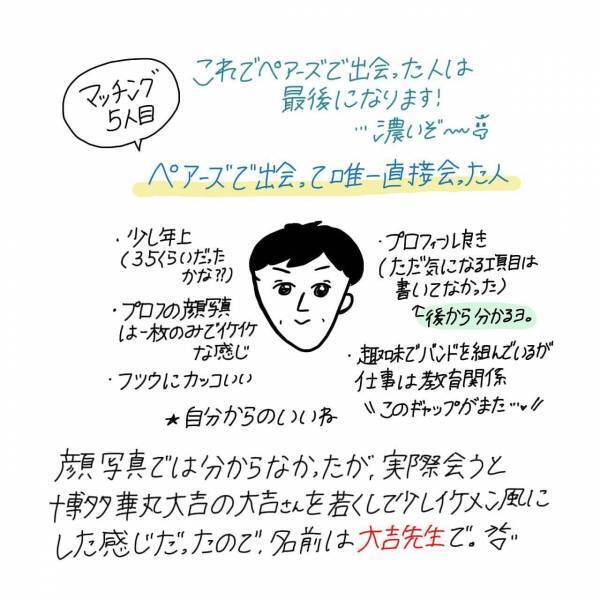 マッチング
5人目
これでペアーズで出会った人は
最後になります!
…濃いぞ〜〜
ペアーズで出会って唯一直接会った人
・少し年上
(35くらいだった
かな??)
・プロフの顔写真
は一枚のみでイケイケ
な感じ
・フツウにカッコいい
・プロフィール良き
(ただ気になる項目は
書いてなかった)
↑後から分かるヨ。
・趣味でバンドを組んでいるが
仕事は教育関係
\\このギャップがまた…♥//
★自分からのいいね
顔写真では分からなかったが、実際会うと
博多華丸大吉の大吉さんを若くして少しイケメン風に
した感じだったので、名前は大吉先生で。笑